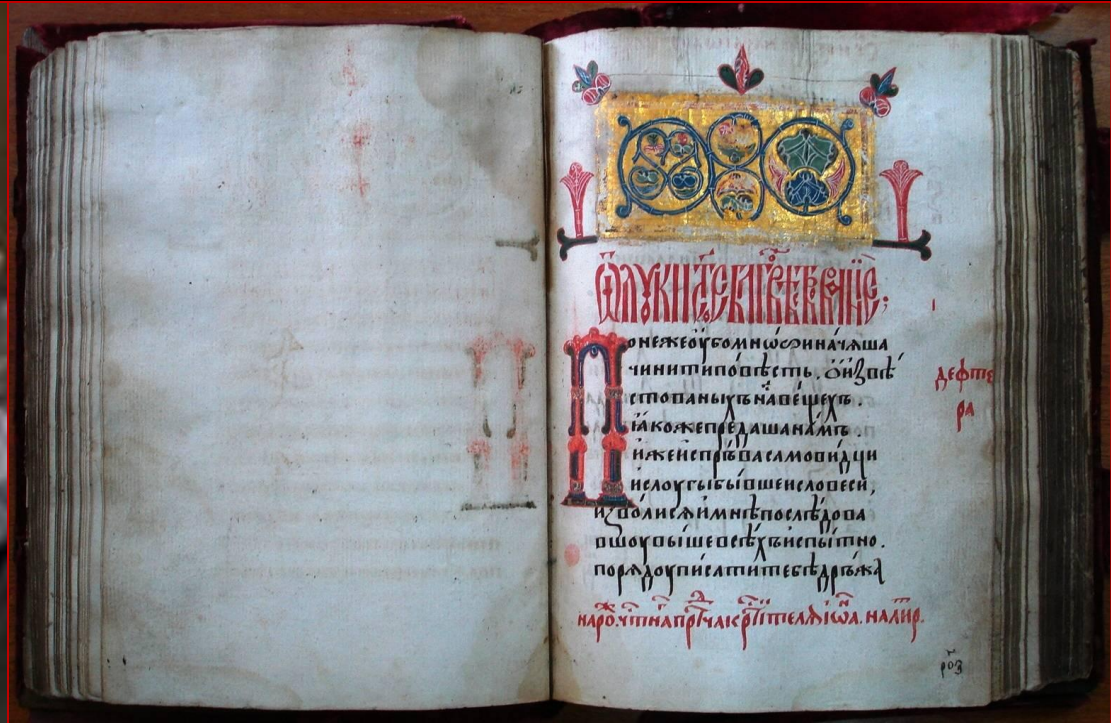 Ѿ лꙋки ст҃ое бл҃говѣствованїе;
Понеже оубо мнѡѕи начѧша
чинити повѣсть, ѡ и҆звѣ
стованыхъ на́ въ вещехъ.
іа҆коже прѣдаша намъ
иже испръва самовидци
и слоугы бывшеи словеси,
и҆зволисѧ и мнѣ послѣдова
вшоу выше всѣхъ испытно.
порѧдоу писати тебѣ дръжа
дефте
ра
рѻз